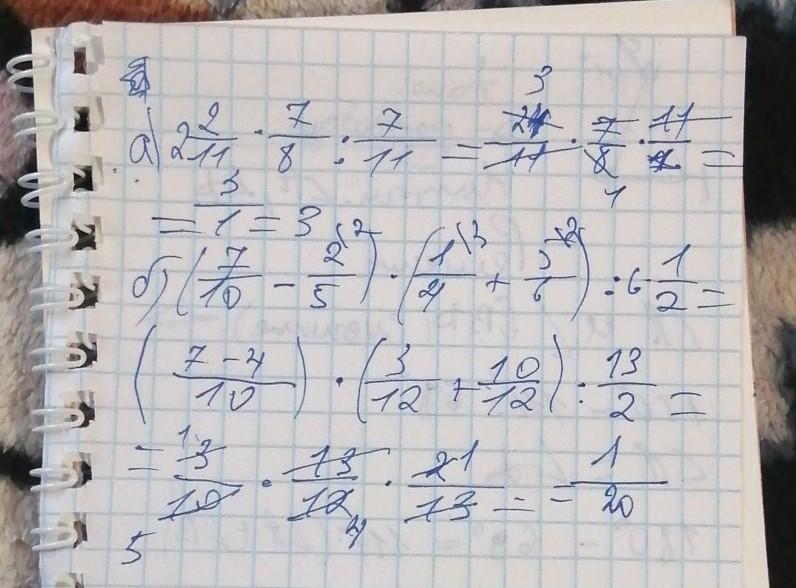 а) 2 2/11 · 7/8 : 7/11 = 24/11 · 7/8 · 11/7 =
= 3/1 = 3
б) (7/10 - 2/5) · (1/4 + 5/6) : 6 1/2 =
(7-4/10) · (3/12 + 10/12) : 13/2 =
= 3/10 · 13/12 · 2/13 = 1/20